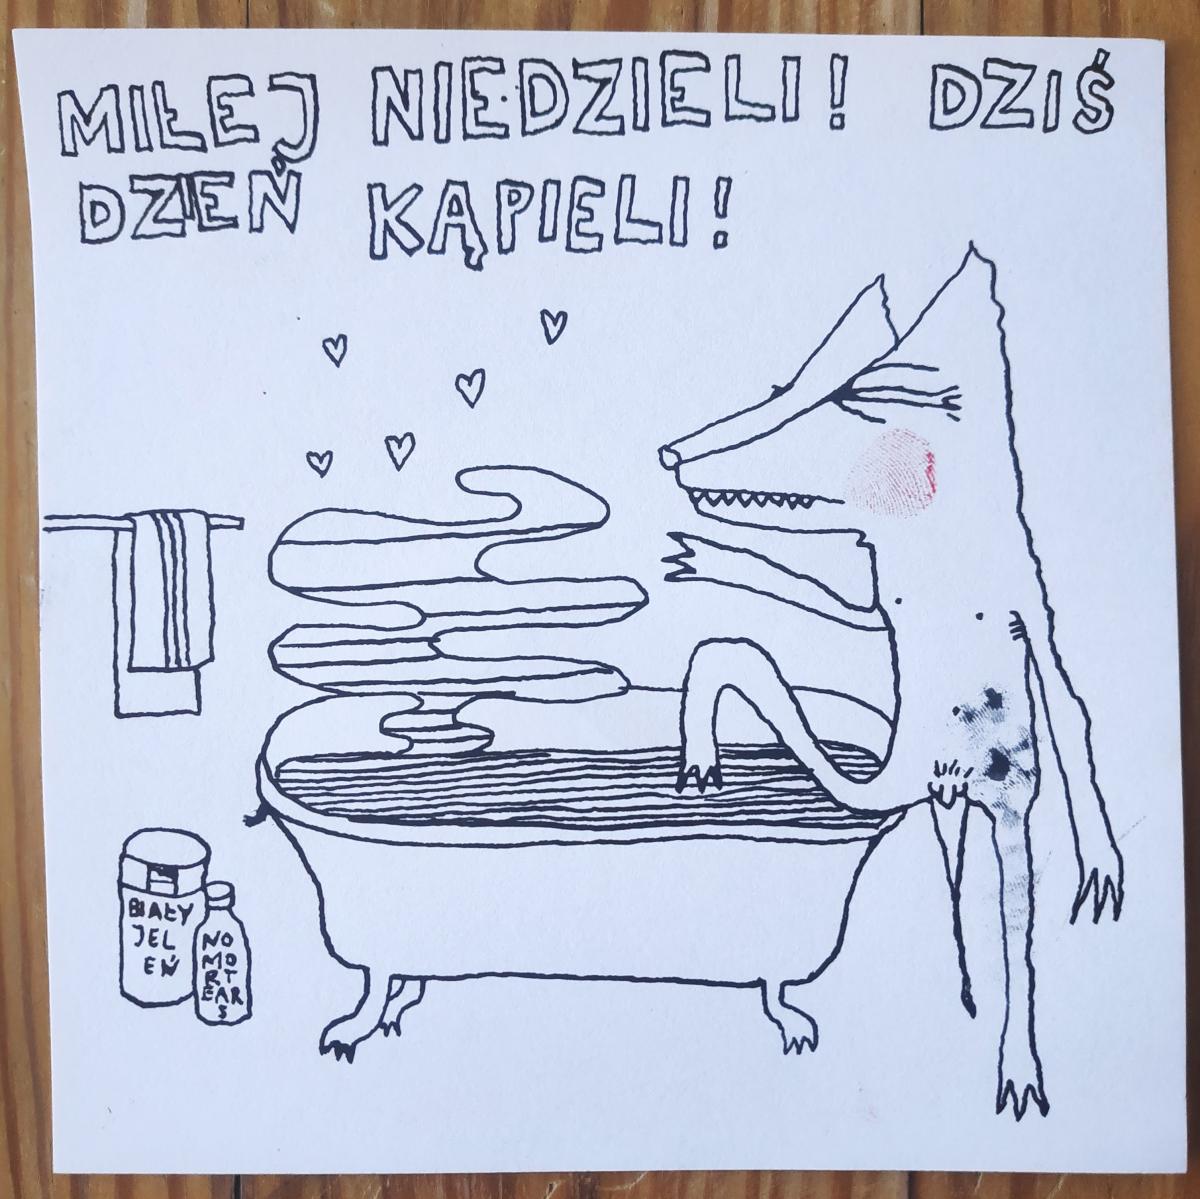 MIŁEJ NIEDZIELI! DZIŚ
DZIEŃ KĄPIELI!
BIAŁY
JEL
EŃ
NO
MO
RT
EAR
S